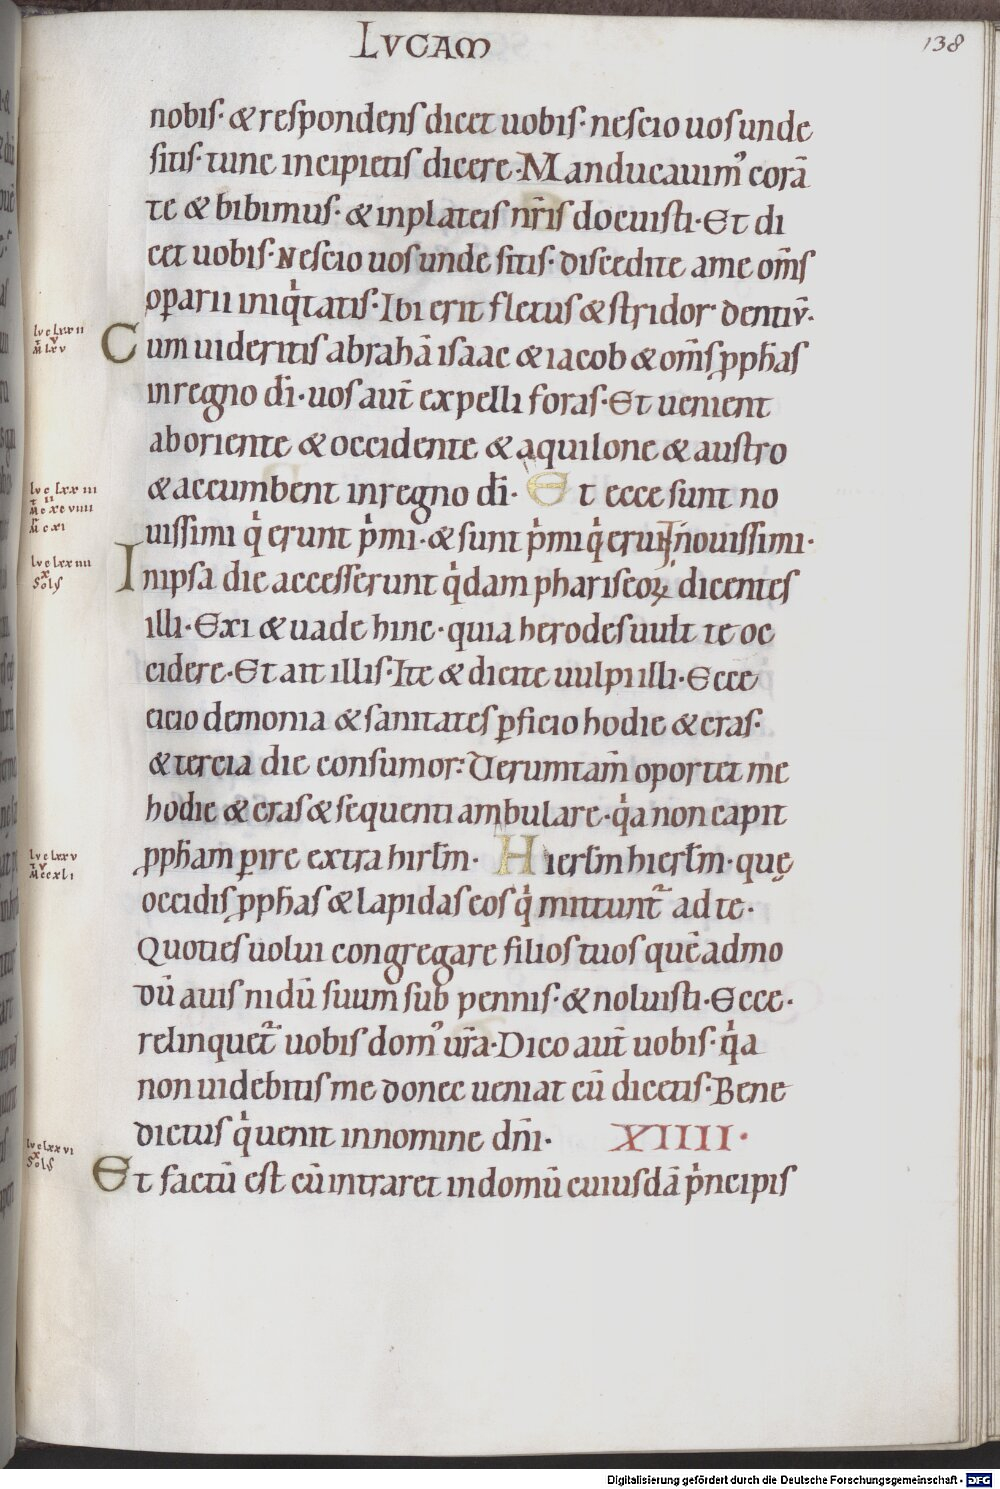 LVCAM
138
nobis· & respondens dicet uobis· nescio uos unde
sitis· tunc incipietis dicere· Manducauim᾿ corā
te & bibimus· & inplateis nr̄is docuisti· Et di
cet uobis· Nescio uos unde sitis· discedite ame om̄s
oꝑarii iniqͥtatis· Ibi erit fletus & stridor dentiū·
lvc lxxii
m lxv
Cum uideritis abrahā isaac & iacob & om̄s ꝓph̄as
inregno dī· uos aut̄ expelli foras· Et uenient
aboriente & occidente & aquilone & austro
lvc lxxiii
& accumbent inregno dī· Et ecce sunt no
uissimi qͥ erunt pͥmi· & sunt pͥmi qͥ erunt nouissimi·
lvc lxxiiii
Sols
Inipsa die accesserunt qͥdam phariseoꝝ dicentes
illi· Exi & uade hinc· quia herodes uult te oc
cidere· Et ait illis· Ite & dicite uulpi illi· Ecce
eicio demonia & sanitates ꝑficio hodie & cras·
& tercia die consumor· Uerumtam̄ oportet me
hodie & cras & sequenti ambulare· qͥa non capit
lvc lxxv
m ccxli
ꝓph̄am ꝑire extra hirl̄m· Hierl̄m hierl̄m· quę
occidis ꝓph̄as & lapidas eos qͥ mittunt᷑ ad te·
Quoties uolui congregare filios tuos quēadmo
dū auis nidū suum sub pennis· & noluisti· Ecce·
relinquet᷑ uobis dom᾿ ur̄a· Dico aut̄ uobis· qͥa
non uidebitis me donec ueniat cū dicetis· Bene
dictus qͥ uenit innomine dn̄i· XIIII·
lvc lxxvi
Sols
Et factū est cū intraret indomū cuiusdā pͥncipis
Digitalisierung gefördert durch die Deutsche Forschungsgemeinschaft - DFG